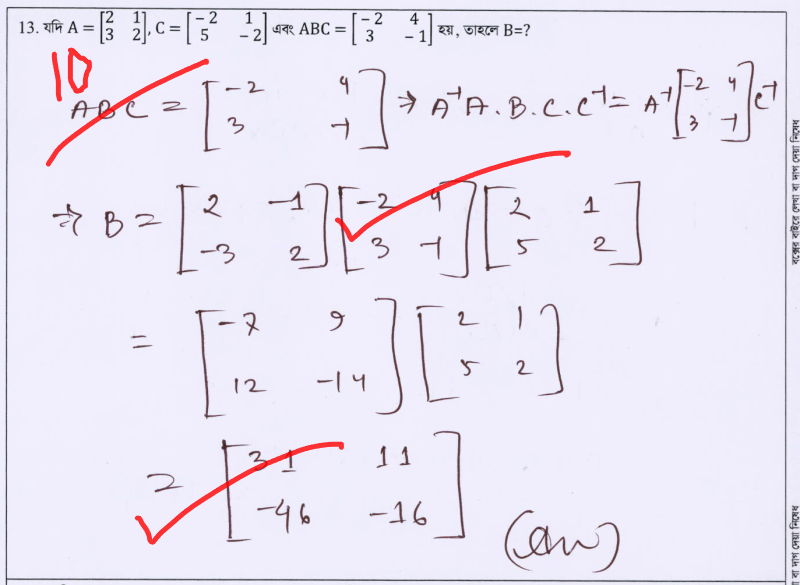 13. যদি A = [2 1; 3 2], C = [−2 1; 5 −2] এবং ABC = [−2 4; 3 −1] হয়, তাহলে B=?
10
ABC = [-2 4; 3 -1] ⇒ A⁻¹A.B.C.C⁻¹ = A⁻¹[-2 4; 3 -1]C⁻¹
⇒ B = [2 -1; -3 2] [-2 4; 3 -1] [2 1; 5 2]
= [-7 9; 12 -14] [2 1; 5 2]
= [31 11; -46 -16]
(Ans)
বক্সের বাইরে লেখা বা দাগ দেয়া নিষেধ
বা দাগ দেয়া নিষেধ